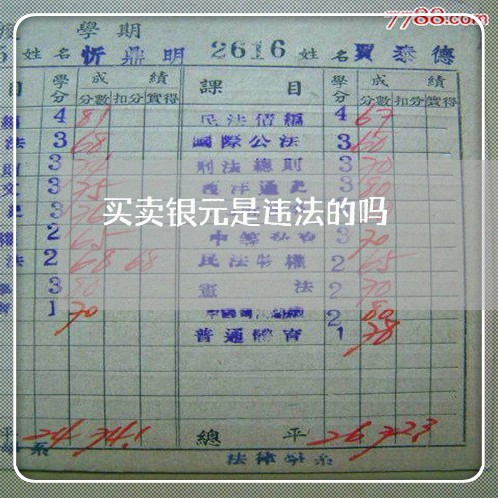 7788.com
學期
5 姓名 忻鼎明 2616 姓名 賈泰德
目 學分 成績 課目 學分 成績
分數 扣分 實得 分數 扣分 實得
4 81 民法債編 4 67
法 3 68 國際公法 3 60
3 刑法總則 3 70
3 75 西洋通史 3 80
买卖银元是违法的吗
2 65 3 70
法 2 68 68 民法物權 2 65
3 80 憲法 2 70
1 70 2 80
普通體育 1 78
平 24 74.1 總平 26 72.3
系 法律學系